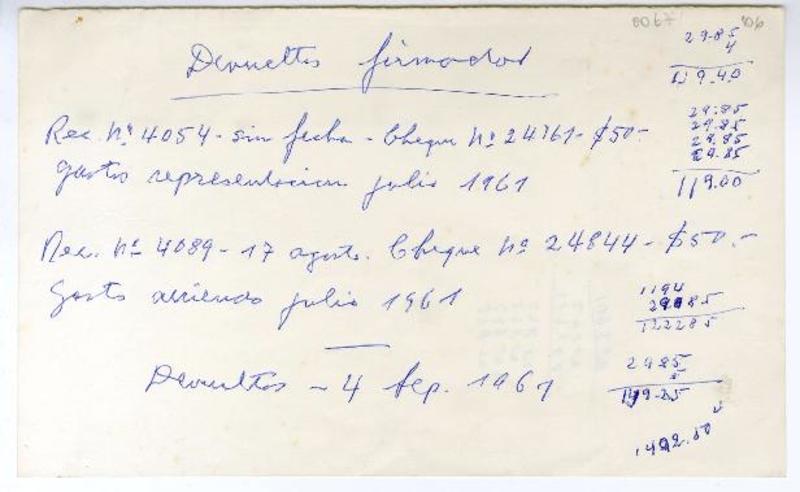 0067 '06
Devueltos firmados
Rec. Nº 4054 - sin fecha - Cheque Nº 24761 - $50.-
gastos representacion julio 1961
Rec. Nº 4089 - 17 agosto. Cheque Nº 24844 - $50.-
Gasto arriendo julio 1961
Devueltos - 4 Sep. 1961
29.85
4
119.40
29.85
29.85
29.85
29.85
119.00
1194
29885
122285
2985
5
149.25
1492.50